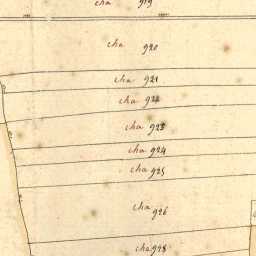 cha 919
cha 920
cha 921
cha 922
cha 923
cha 924
cha 925
cha 926
cha 928